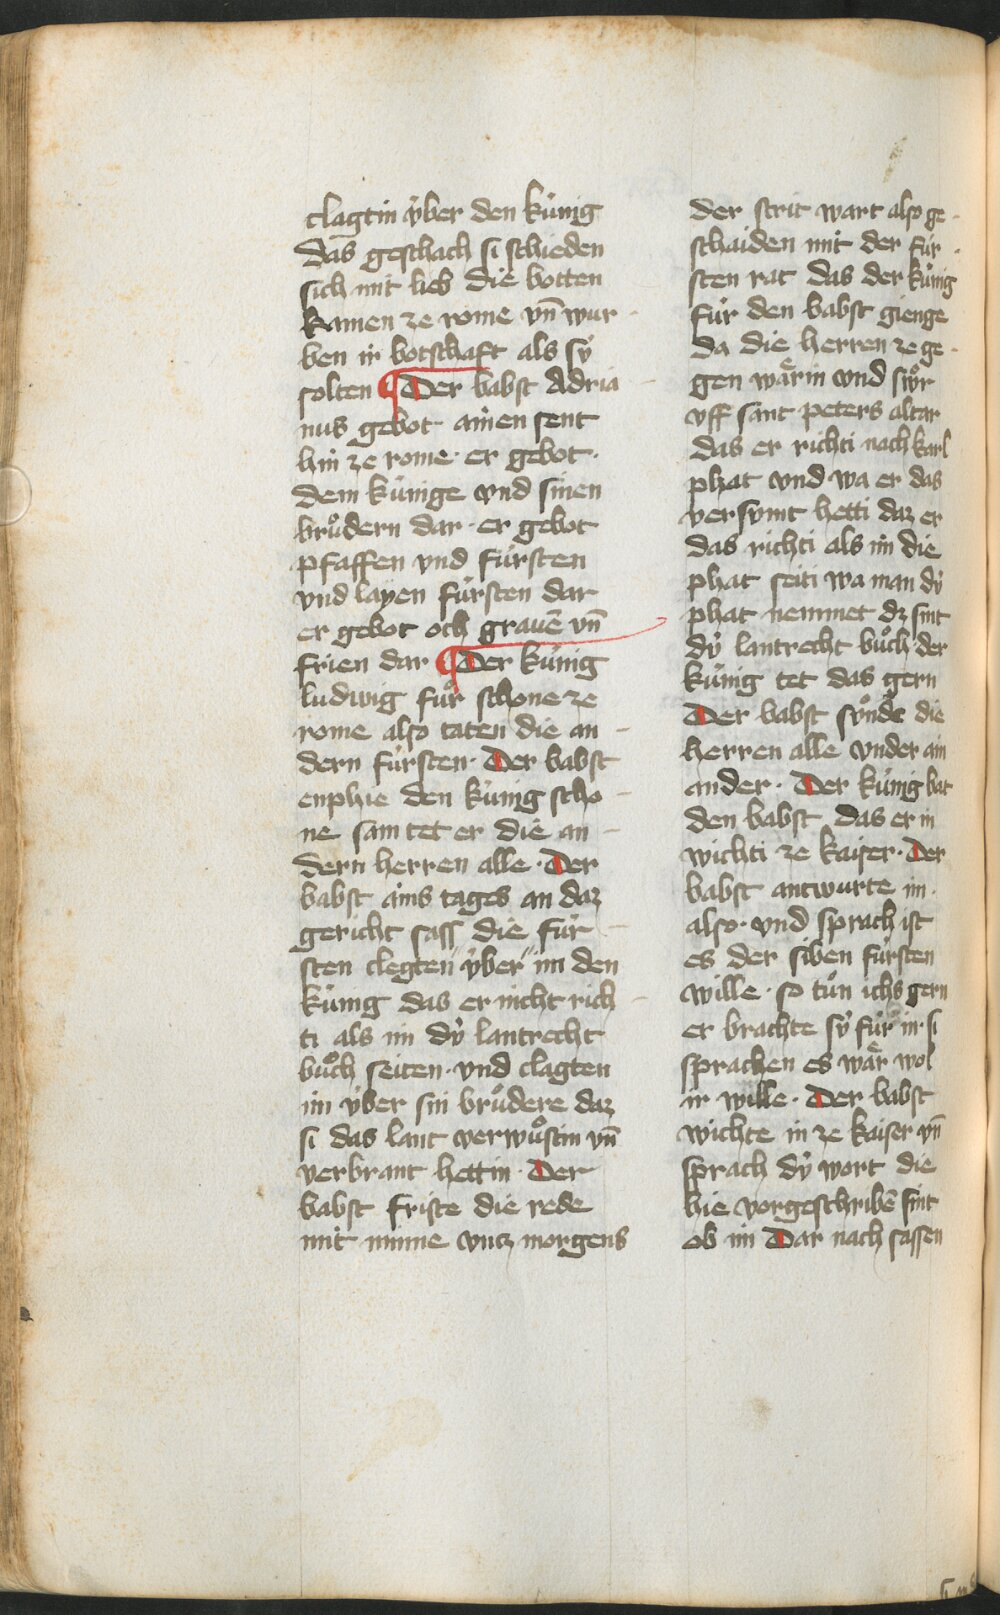 clagtin ẏber den kúnig
das geschach si schieden
sich mit lieb die botten
kamen ze rome vn̄ wur
ben ir botschaft als sẏ
solten ¶ Der babst Adria
nus gebot ainen sent
hin ze rome · er gebot ·
dem kúnige vnd sinen
brůdern dar · er gebot
pfaffen vnd fúrsten
vnd layen fúrsten dar
er gebot och grauē vn̄
frien dar ¶ Der kúnig
ludwig fůr schone ze
rome also taten die an
dern fúrsten · Der babst
enphie den kúnig scho
ne sam tet er die an
dern herren alle · Der
babst ains tages an daz
gericht sass die fúr
sten clegten ẏber im den
kúnig das er nicht rich
ti als im dẏ lantrecht
bůch seiten · vnd clagten
im ẏber sin brůdere daz
si das lant verwůstin vn̄
verbrant hettin · Der
babst friste die rede
mit minne vntz morgens
der strit wart also ge
schaiden mit der fúr
sten rat das der kúnig
fúr den babst gienge
da die herren ze ge
gen waͤrin vnd swůr
vff sant peters altar
das er richti nach karl
phat vnd wa er das
versvmt hetti daz er
das richti als im die
phat seiti wa man dẏ
phat nemmet dz sint
dẏ lantrecht bůch der
kúnig tet das gern
Der babst sv̊nde die
herren alle vnder ain
ander · Der kúnig bat
den babst das er in
wichti ze kaiser · Der
babst antwurte im
also · vnd sprach ist
es der siben fúrsten
wille · so tůn ichs gern
er brachte sẏ fúr in · si
sprachen es waͤr wol
ir wille · Der babst
wichte in ze kaiser vn̄
sprach dẏ wort die
hie vorgeschribē sint
ob im Dar nach sassen